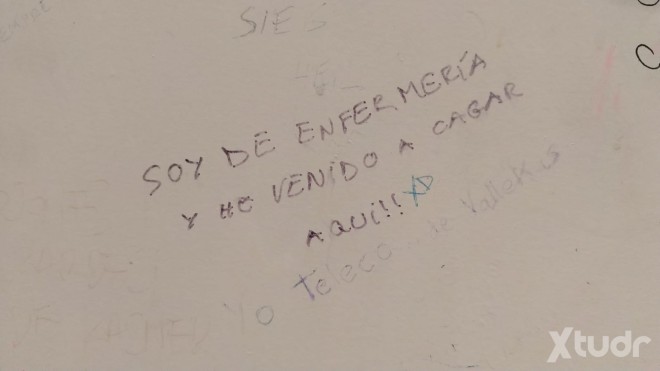 SIE
SOY DE ENFERMERÍA
Y HE VENIDO A CAGAR
AQUÍ!! XD
Yo Teleco de Vallekas
Xtudr